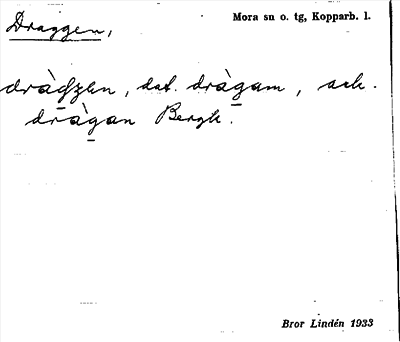 Draggen,
Mora sn o. tg, Kopparb. l.
dràdzen, dat. dràgam, ack.
dràgan Bergk.
Bror Lindén 1933